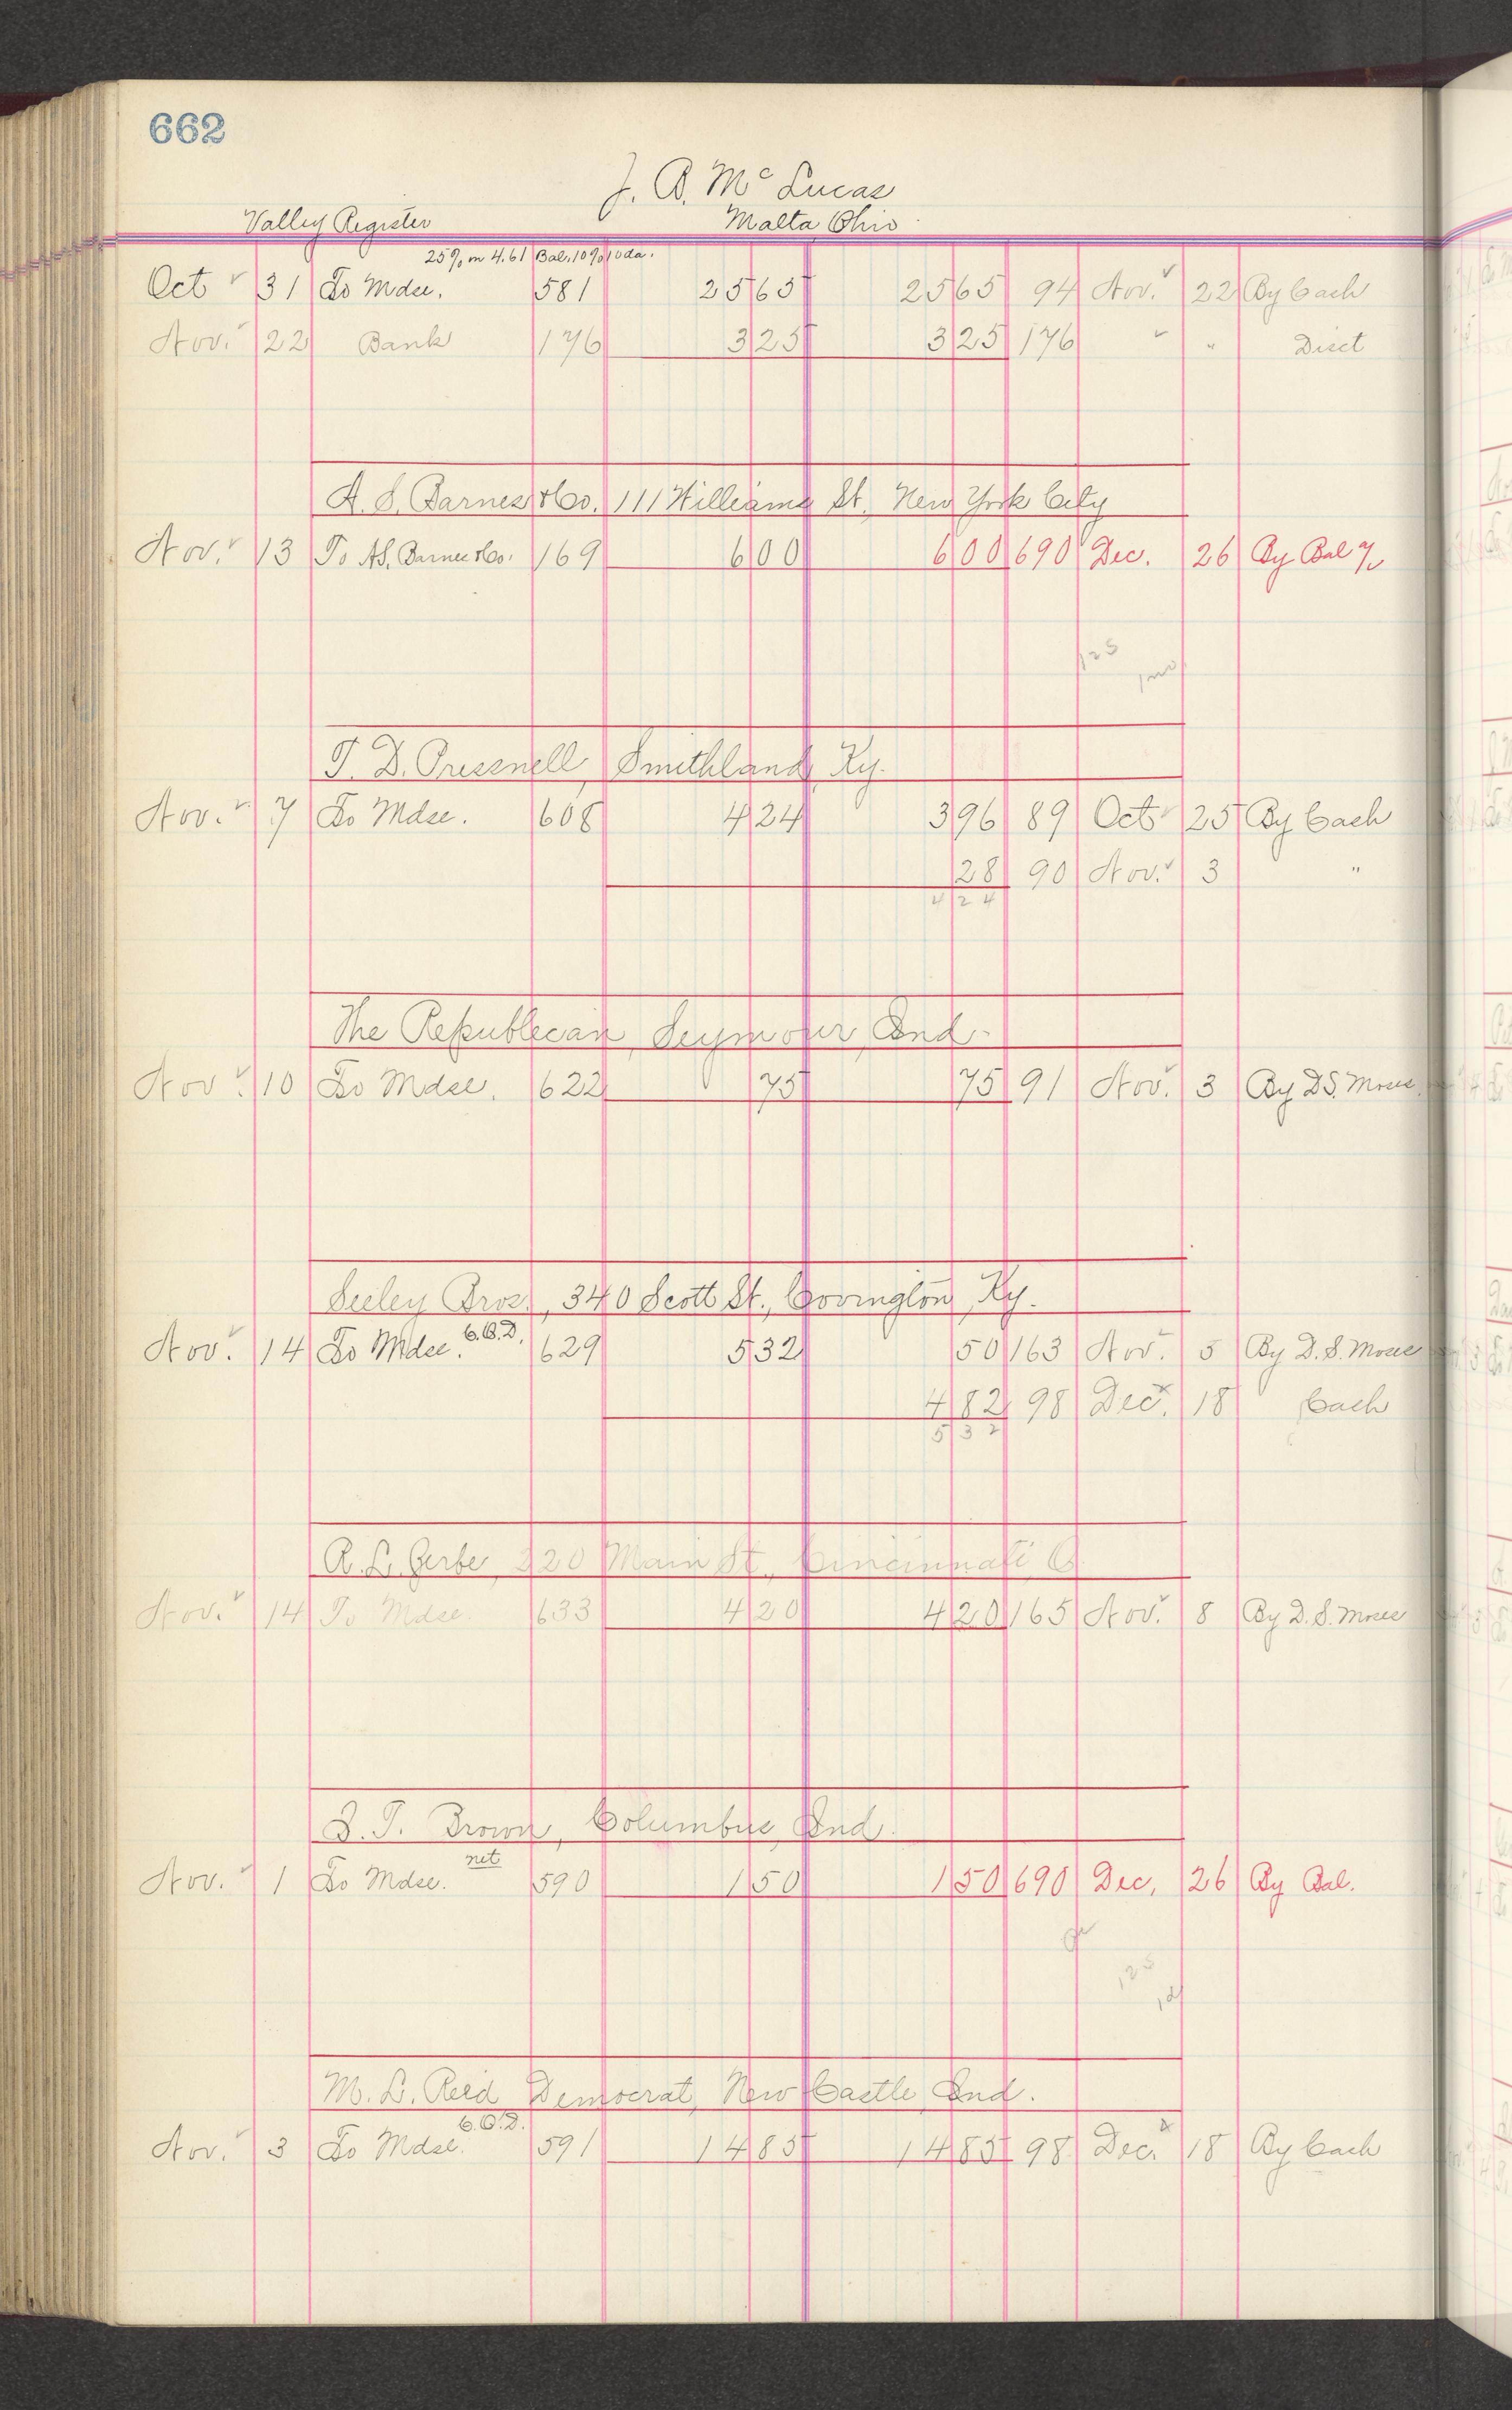 662
J. B. Mc Lucas
Valley Register Malta Ohio
25% on 4.61 Bal. 10% 10 da.
Oct 31 To Mdse. 581 2565 2565 94 Nov. 22 By Cash
Nov. 22 Bank 176 325 325 176 " " Disct
A. S. Barnes & Co. 111 Williams St., New York City
Nov. 13 To A.S. Barnes & Co. 169 600 600 690 Dec. 26 By Bal %
125
1 mo
T. D. Pressnell, Smithland, Ky.
Nov. 7 To Mdse. 608 424 396 89 Oct 25 By Cash
28 90 Nov. 3 "
424
The Republican, Seymour, Ind.
Nov. 10 To Mdse. 622 75 75 91 Nov. 3 By D.S. Moses
Seeley Bros., 340 Scott St., Covington, Ky.
Nov. 14 To Mdse. C.O.D. 629 532 50 163 Nov. 5 By D. S. Moses
482 98 Dec. 18 Cash
532
R. L. Gerbe, 220 Main St., Cincinnati, O.
Nov. 14 To Mdse. 633 420 420 165 Nov. 8 By D. S. Moses
I. T. Brown, Columbus, Ind.
Nov. 1 To Mdse. net 590 150 150 690 Dec. 26 By Bal.
125
M. L. Reid Democrat, New Castle, Ind.
Nov. 3 To Mdse. C.O.D. 591 1485 1485 98 Dec. 18 By Cash